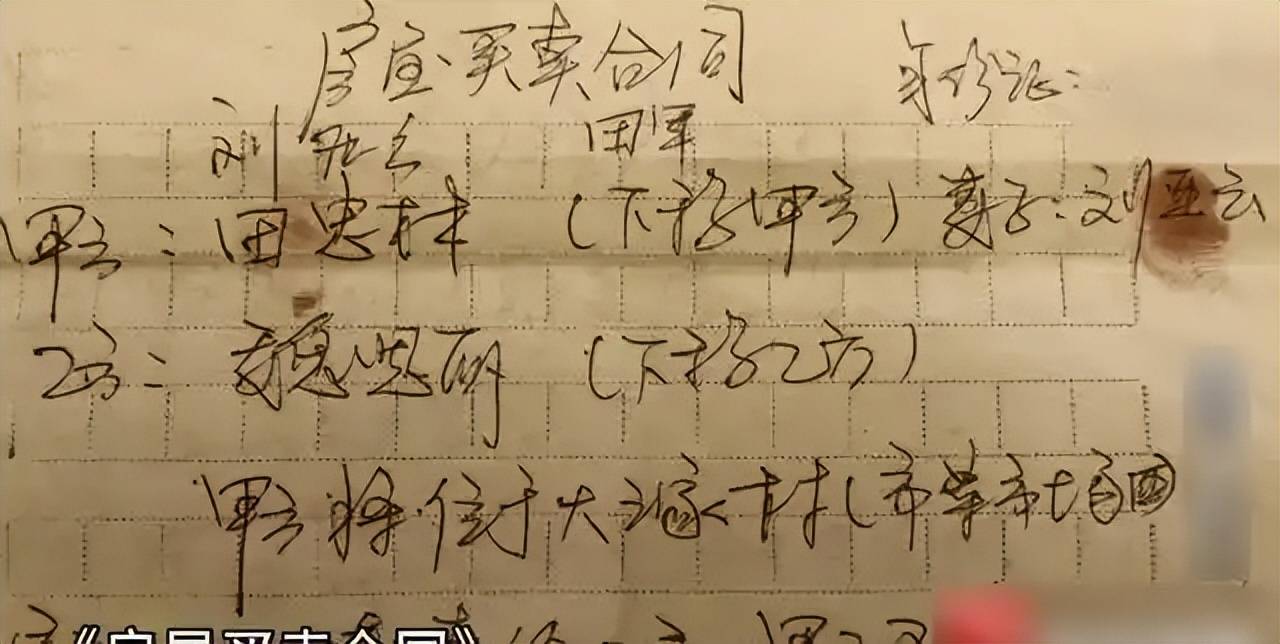 房屋买卖合同 身份证:
刘亚云 田军
甲方:田忠林 (下称甲方) 妻子:刘亚云
乙方:魏 丽 (下称乙方)
甲方将位于大 村(市 市场西
《房屋买卖合同》